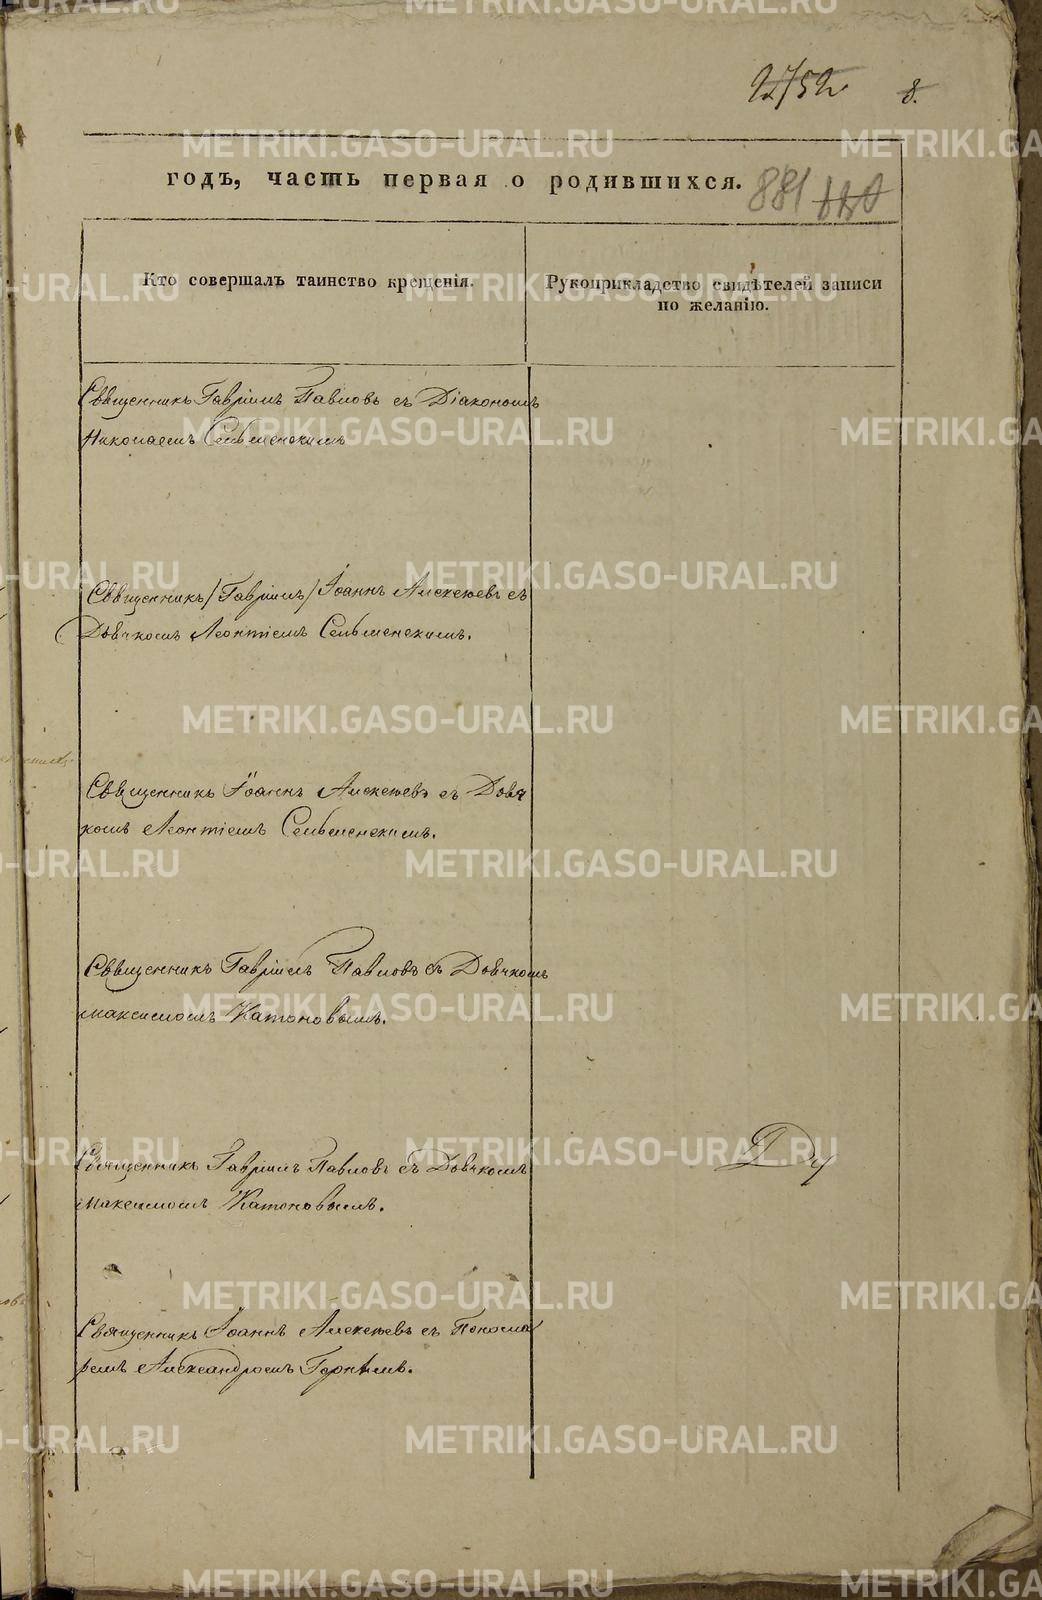 2752 8.
годъ, часть первая о родившихся. 881
Кто совершалъ таинство крещенія.
Рукоприкладство свидѣтелей записи
по желанію.
Священникъ Гавріилъ Павловъ съ Діакономъ
Николаемъ Сельменскимъ
Священникъ /Гавріилъ/ Іоаннъ Алексѣевъ съ
Дьячкомъ Леонтіемъ Сельменскимъ.
Священникъ Іоаннъ Алексѣевъ съ Дьяч
комъ Леонтіемъ Сельменскимъ.
Священникъ Гавріилъ Павловъ съ Дьячкомъ
Максимомъ Катоновымъ.
Священникъ Гавріилъ Павловъ съ Дьячкомъ
Максимомъ Катоновымъ.
Священникъ Іоаннъ Алексѣевъ съ Понома
ремъ Александромъ
METRIKI.GASO-URAL.RU